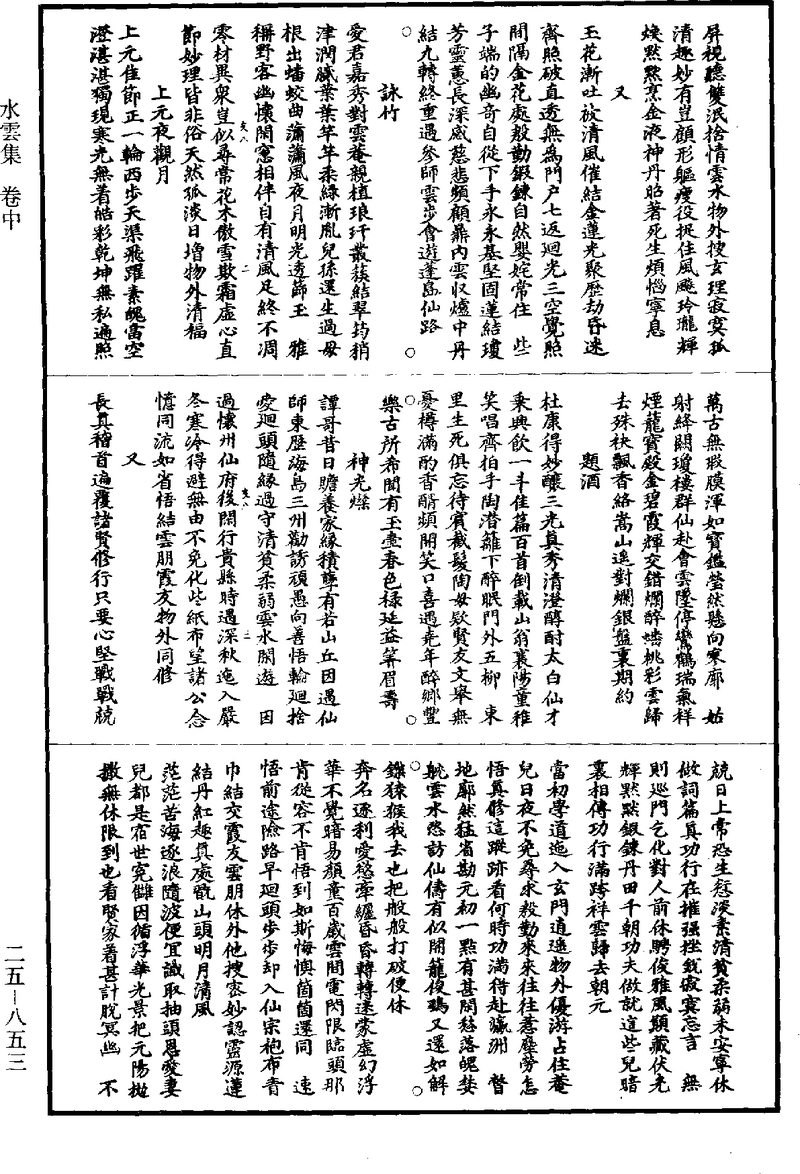 水雲集 卷中
屏視聽雙泯捨情雲水物外搜玄理寂寞孤
清趣妙有豈顧形軀瘦役捉住風飈玲瓏輝
煥默默烹金液神丹昭著死生煩惱寧息
又
玉花漸吐被清風催結金蓮光聚歷劫昏迷
齋照破直透無為門戶七返迴光三空覺照
間隔金花處殷勤鍛鍊自然嬰姹常住 些
子端的幽奇自從下手永永基堅固蓮結瓊
芳靈蕙長深感慈悲頻顧鼎內雲收爐中丹
結九轉終重遇參師雲步會遊蓬島仙路
詠竹
愛君嘉秀對雲菴親植琅玕叢蔟結翠筠梢
津潤膩葉葉竿竿柔綠漸胤兒孫還生過母
根出蟠蛟曲瀟瀟風夜月明光透篩玉 雅
稱野客幽懷閑窻相伴自有清風足終不凋
零材異衆豈似尋常花木傲雪欺霜虛心直
節妙理皆非俗天然孤淡日增物外清福
上元夜觀月
上元佳節正一輪西步天渠飛躍素魄當空
澄湛湛獨現寒光無著皓彩乾坤無私遍照
萬古無瑕膜渾如寶鑑瑩然懸向寒廓 姑
射絳闕瓊樓群仙赴會雲墜停鸞鶴瑞氣祥
煙籠寶殿金碧霞輝交錯爛醉蟠桃彩雲歸
去殊袂飄香絡嵩山遙對爛銀盤裏期約
題酒
杜康得妙釀三光真秀清澄醇酎太白仙才
乘興飲一斗佳篇百首倒載山翁襄陽童稚
笑唱齊拍手陶潛籬下醉眠門外五柳 東
里生死俱忘待賓截髮陶母欵賢友文舉無
憂樽滿酌香醑頻開笑口喜遇堯年醉鄉豐
樂古所希聞有玉壺春色祿延益筭眉壽
神光燦
譚哥昔日贍養家緣積孽有若山丘因遇仙
師東歷海島三州勸誘頑愚向善悟輪迴捨
愛迴頭隨緣過守清貧柔弱雲水閑遊 因
過懷州仙府後閑行貴縣時遇深秋迤入嚴
冬寒冷得避無由不免化些紙布望諸公念
憶同流如省悟結雲朋霞友物外同修
又
長真稽首遍覆諸賢修行只要心堅戰戰兢
兢日上常恐生愆淡素清貧柔弱未安寧休
做詞篇真功行在摧强挫銳寂寞忘言 無
則巡門乞化對人前休騁俊雅風顛藏伏光
輝默默鍛鍊丹田千朝功夫做就這些兒暗
裏相傳功行滿跨祥雲歸去朝元
當初學道迤入玄門逍遙物外優游占住菴
兒日夜不免尋求殺勤來來往往惹塵勞怎
悟真修這蹤跡看何時功滿得赴瀛洲 瞥
地廓然猛省勘元初一點有甚閑愁落魄婪
躭雲水恣訪仙儔有似開籠俊鷂又還如解
鏁猿猴我去也把般般打破便休
奔名逐利愛慾牽纏昏昏轉轉迷蒙虛幻浮
華不覺暗易顏童百歲雲間電閃限臨頭那
肯從容不肯悟到如斯悔懊箇箇還同 速
悟前途險路早迴頭步步却入仙宗袍布青
巾結交霞友雲朋休外他搜密妙認靈源蓮
結丹紅趣真處翫山頭明月清風
茫茫苦海逐浪隨波便宜識取抽頭恩愛妻
兒都是宿世寃讎因循浮華光景把元陽拋
撒無休限到也看賢家著甚計脫冥幽 不
二五－八五三